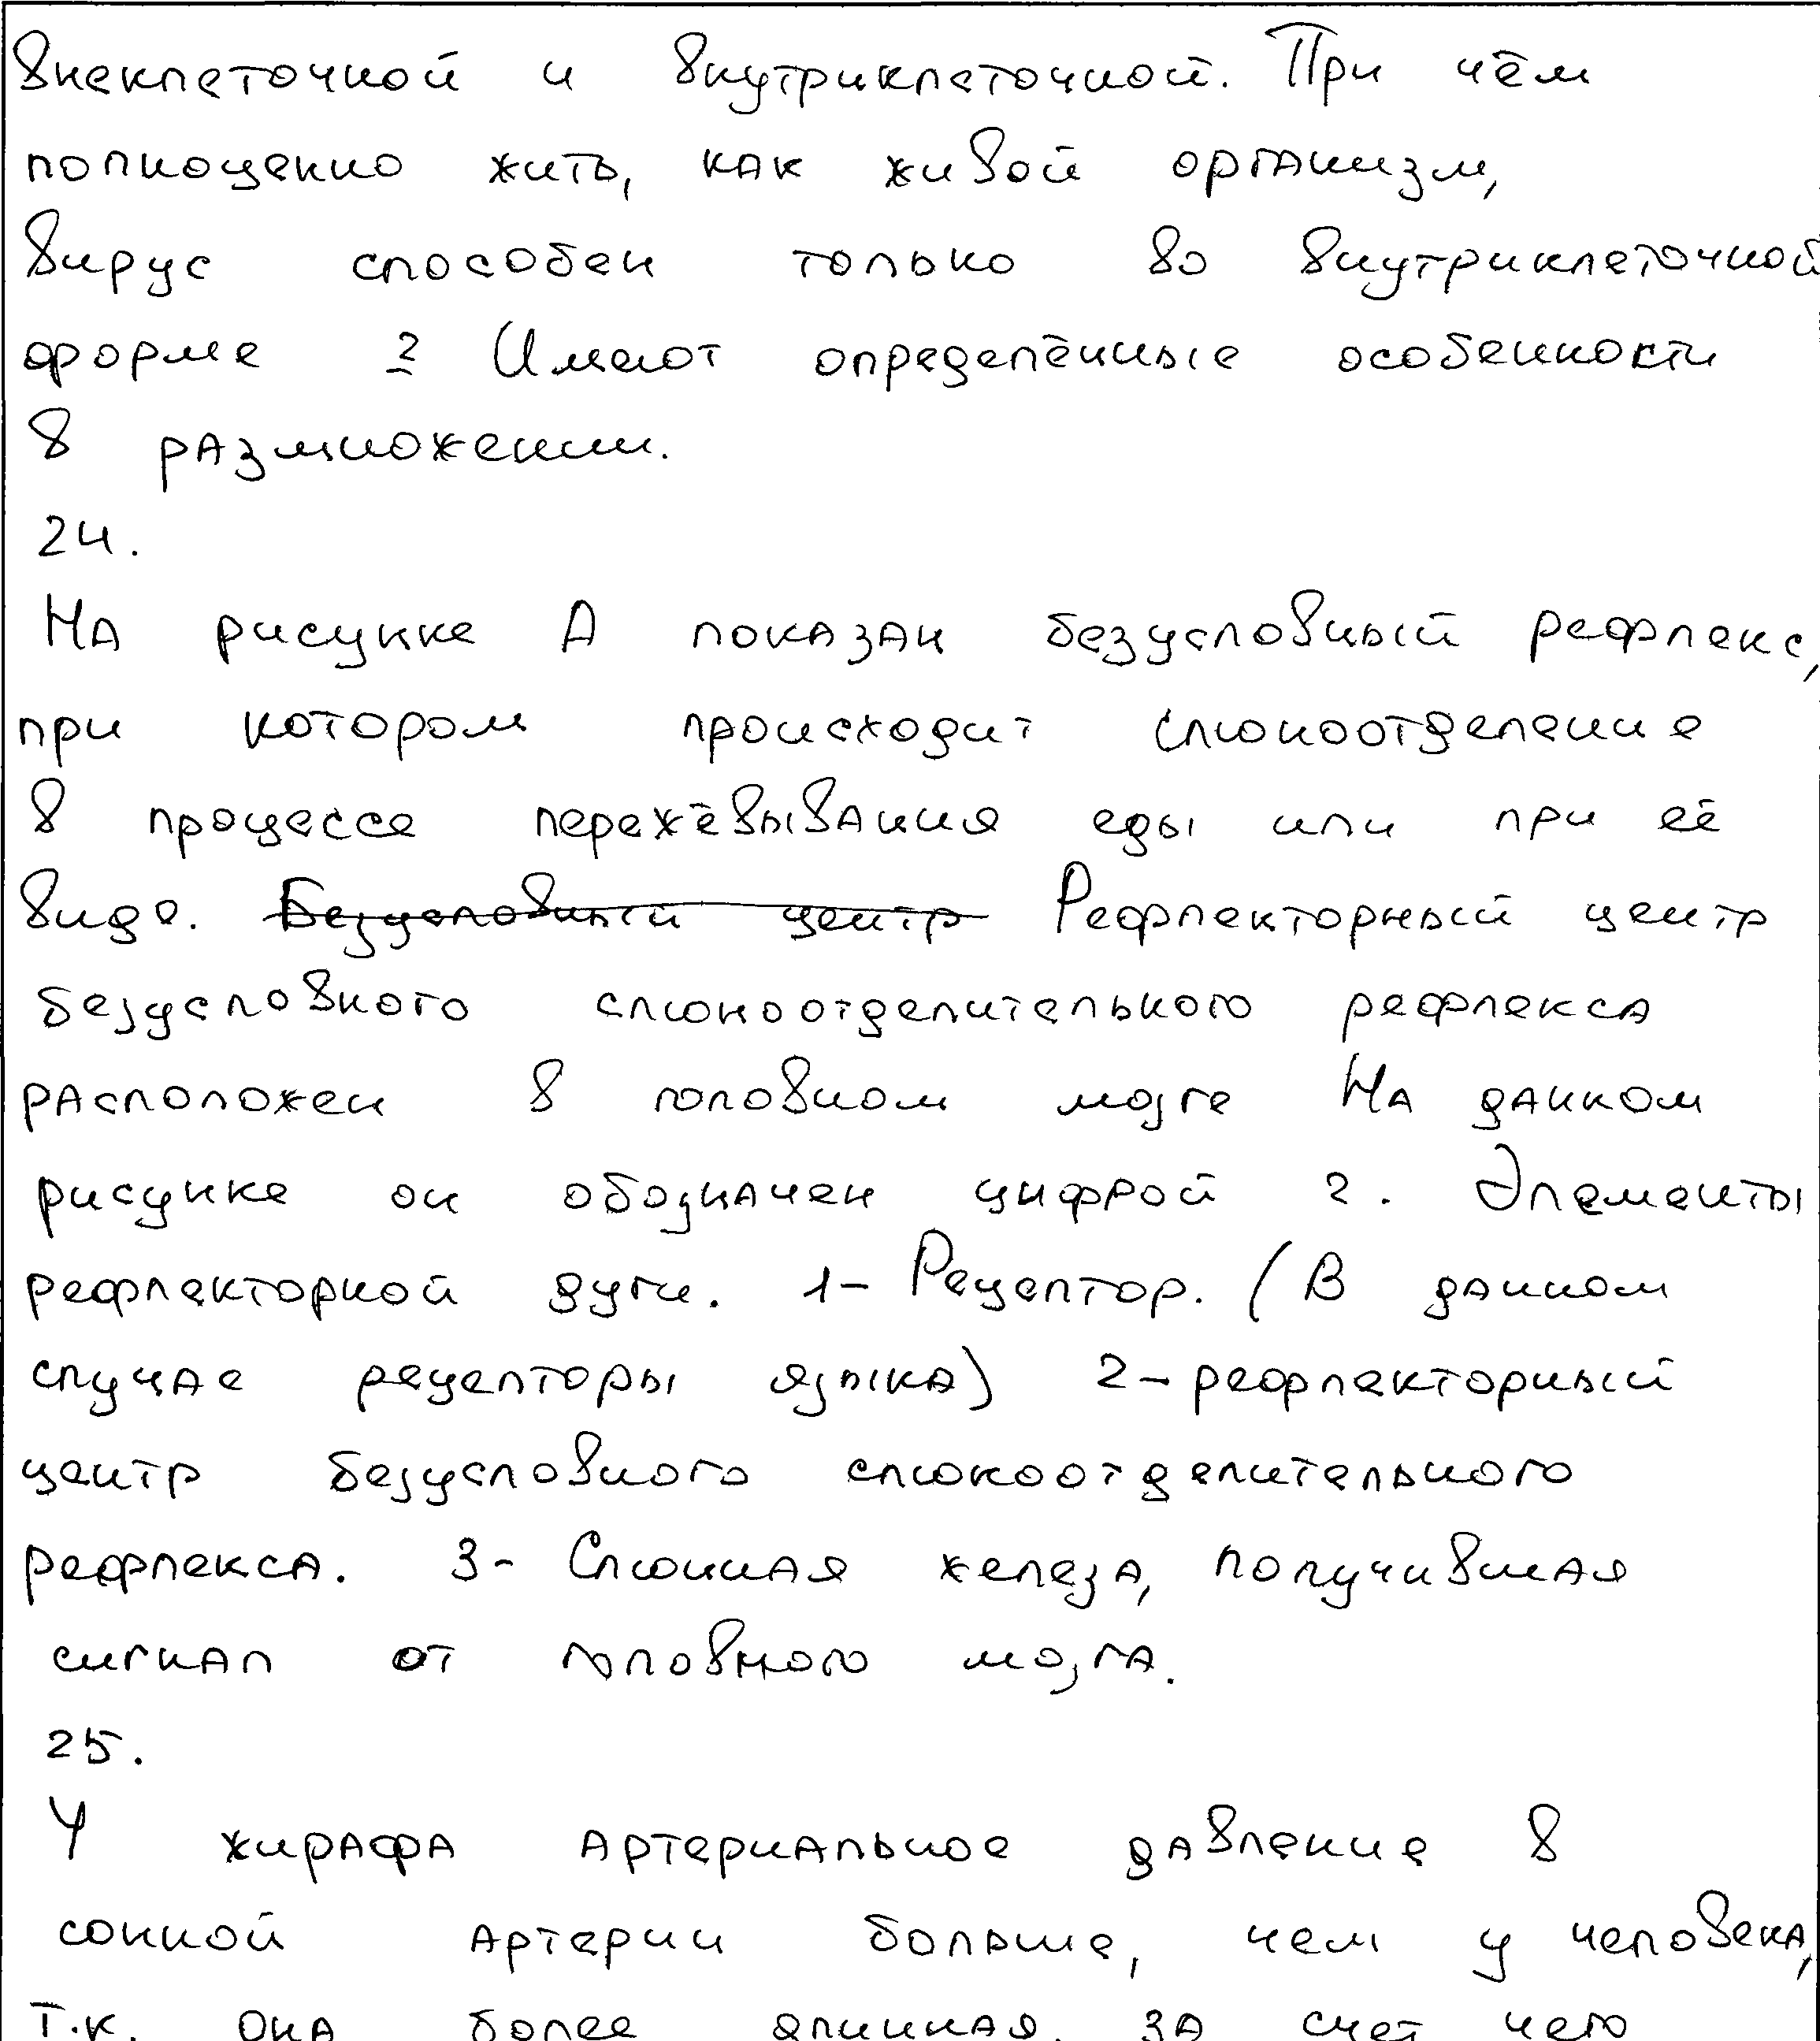 внеклеточной и внутриклеточной. При чём
полноценно жить, как живой организм,
вирус способен только во внутриклеточной
форме 2 Имеют определённые особенности
в размножении.
24.
На рисунке А показан безусловный рефлекс,
при котором происходит слюноотделение
в процессе пережёвывания еды или при её
виде. Безусловный центр Рефлекторный центр
безусловного слюноотделительного рефлекса
расположен в головном мозге На данном
рисунке он обозначен цифрой 2. Элементы
рефлекторной дуги. 1- Рецептор. (В данном
случае рецепторы языка) 2-рефлекторный
центр безусловного слюноотделительного
рефлекса. 3- Слюнная железа, получившая
сигнал от головного мозга.
25.
У жирафа артериальное давление в
сонной артерии больше, чем у человека,
т.к. она более длинная, за счет чего